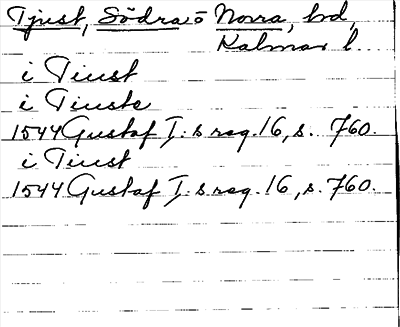 Tjust, Södra o Norra, hd,
Kalmar l.
i Tiust
i Tiuste
1544 Gustaf I:s reg. 16, s. 760.
i Tiust
1544 Gustaf I:s reg. 16, s. 760.